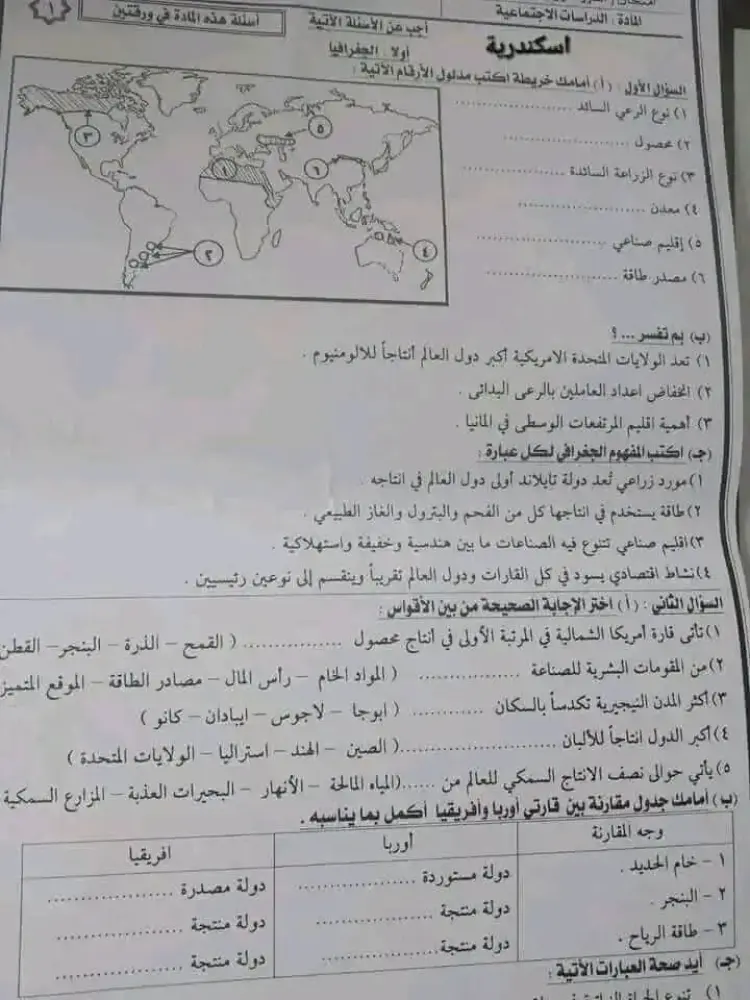 المادة : الدراسات الاجتماعية
أسئلة هذه المادة في ورقتين
١
أجب عن الأسئلة الآتية
اسكندرية
أولا : الجغرافيا
السؤال الأول : (أ) أمامك خريطة اكتب مدلول الأرقام الآتية :
١) نوع الرعي السائد ....................
٢) محصول ....................
٣) نوع الزراعة السائدة ....................
٤) معدن ....................
٥) إقليم صناعي ....................
٦) مصدر طاقة ....................
٣
٥
١
٦
٢
٤
(ب) بم تفسر ... ؟
١) تعد الولايات المتحدة الامريكية أكبر دول العالم أنتاجاً للالومنيوم .
٢) انخفاض اعداد العاملين بالرعى البدائى .
٣) أهمية اقليم المرتفعات الوسطى في المانيا .
(جـ) اكتب المفهوم الجغرافي لكل عبارة :
١) مورد زراعي تُعد دولة تايلاند أولى دول العالم في انتاجه .
٢) طاقة يستخدم في انتاجها كل من الفحم والبترول والغاز الطبيعي .
٣) اقليم صناعي تتنوع فيه الصناعات ما بين هندسية وخفيفة واستهلاكية .
٤) نشاط اقتصادي يسود في كل القارات ودول العالم تقريباً وينقسم إلى نوعين رئيسيين .
السؤال الثاني : (أ) اختر الإجابة الصحيحة من بين الأقواس :
١) تأتى قارة أمريكا الشمالية في المرتبة الأولى في أنتاج محصول ................ ( القمح – الذرة – البنجر – القطن
٢) من المقومات البشرية للصناعة ................ ( المواد الخام – رأس المال – مصادر الطاقة – الموقع المتميز
٣) أكثر المدن النيجيرية تكدساً بالسكان ............ ( ابوجا – لاجوس – ايبادان – كانو )
٤) أكبر الدول انتاجاً للألبان ........................ ( الصين – الهند – استراليا – الولايات المتحدة )
٥) يأتي حوالى نصف الانتاج السمكي للعالم من ...... (المياه المالحة – الأنهار – البحيرات العذبة – المزارع السمكية
(ب) أمامك جدول مقارنة بين قارتي أوربا وأفريقيا أكمل بما يناسبه .
وجه المقارنة أوربا افريقيا
١ – خام الحديد . دولة مستوردة .................... دولة مصدرة ....................
٢ – البنجر . دولة منتجة .................... دولة منتجة ....................
٣ – طاقة الرياح . دولة منتجة .................... دولة منتجة ....................
(جـ) أيد صحة العبارات الآتية :
١) تنوع